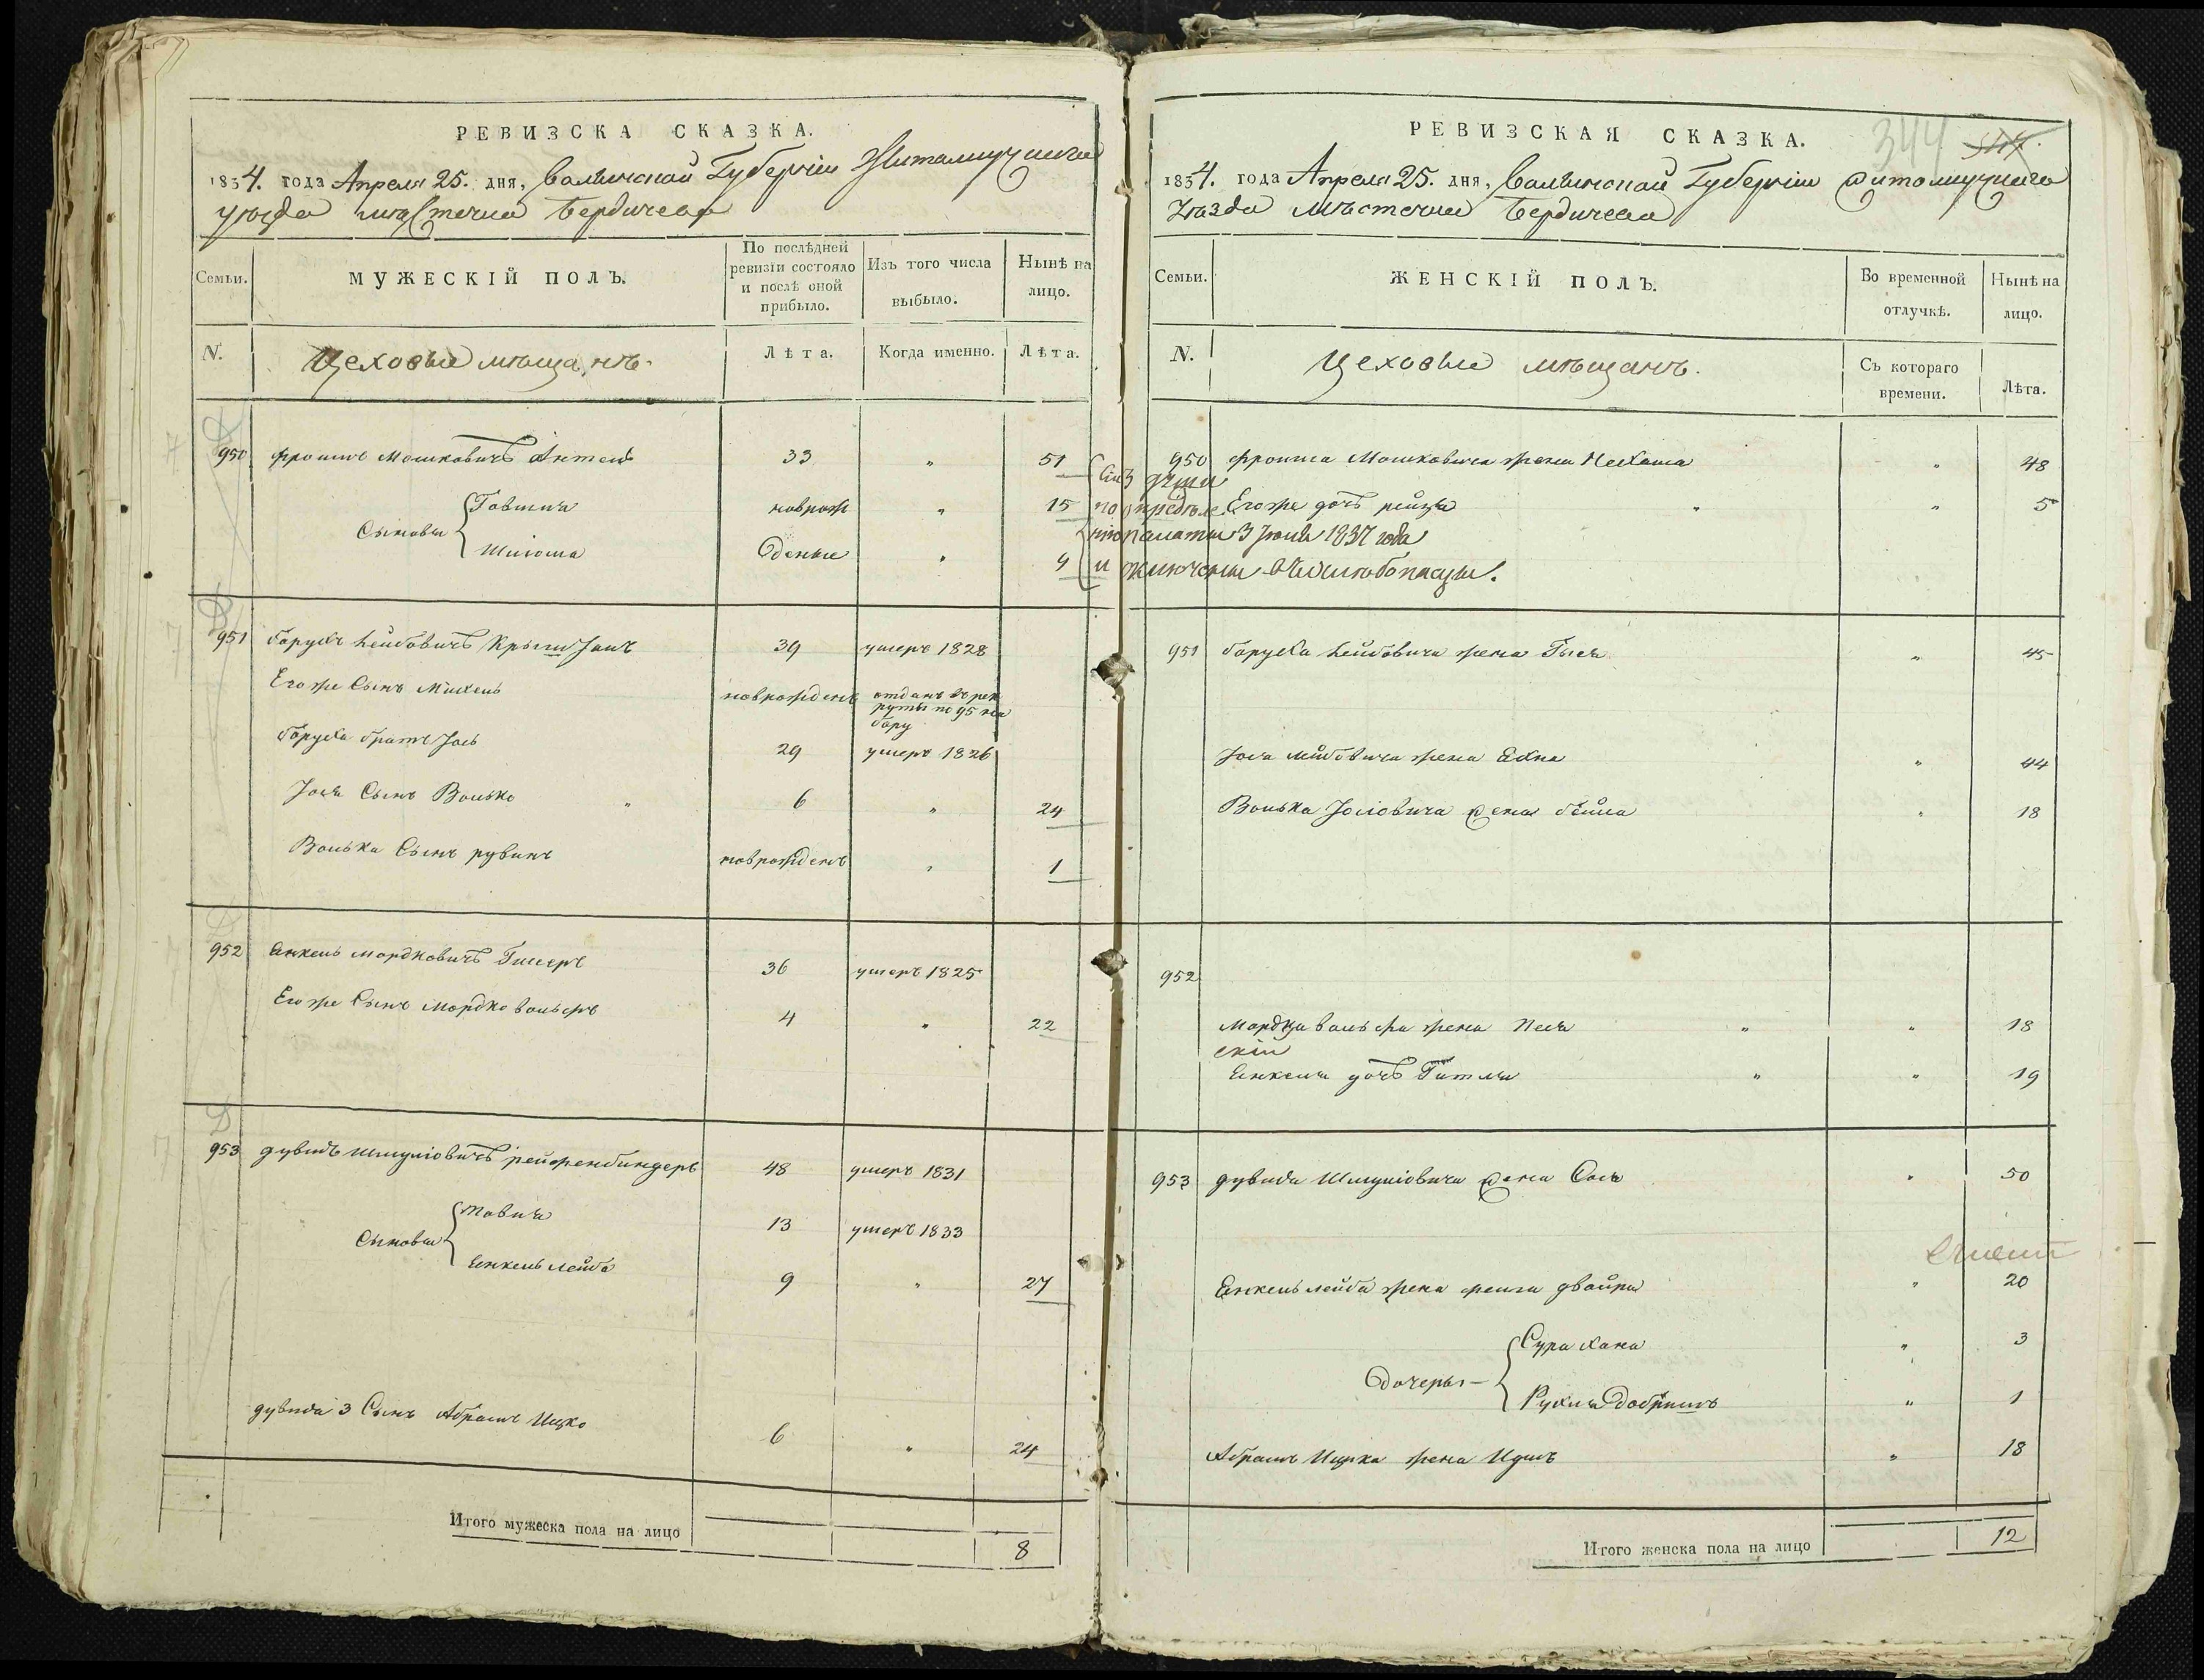 РЕВИЗСКА СКАЗКА.
1834. года Апреля 25. дня, Волынской Губерніи Житомирскаго
уезда местечка Бердичева
Семьи.
МУЖЕСКІЙ ПОЛЪ.
По послѣдней ревизіи состояло и послѣ оной прибыло.
Изъ того числа выбыло.
Нынѣ на лицо.
N.
Цеховые мѣщанъ.
Лѣта.
Когда именно.
Лѣта.
950 Фроимъ Мошковичъ 33 " 51
Сыновья
Товшиа новрож " 15
Шлиома деные " 4
951 Борухъ Лейбовичъ 39 умеръ 1828
Его же Сынъ Михель новрожденъ отданъ въ рек
руты по 95 на
бору
Боруха братъ Іось 29 умеръ 1826
Іося Сынъ Волько " 6 " 24
Волька Сынъ рувинъ новрожденъ " 1
952 Енкель Мордковичъ 36 умеръ 1825
Его же Сынъ Мордко вольфъ 4 " 22
953 дувидъ Шмуліовичъ рейфенбиндеръ 48 умеръ 1831
Сыновья
товиа 13 умеръ 1833
Енкель лейба 9 " 27
дувида 3 Сынъ Абрамъ Ицко 6 " 24
Итого мужеска пола на лицо 8
РЕВИЗСКАЯ СКАЗКА.
344
1834. года Апреля 25. дня, Волынской Губерніи Житомирскаго
Уѣзда Мѣстечка Бердичева
Семьи.
ЖЕНСКІЙ ПОЛЪ.
Во временной отлучкѣ.
Нынѣ на лицо.
N.
Цеховые мѣщанъ.
Съ котораго времени.
Лѣта.
950 Фроима Мошковича жена Нехама " 48
Сіи 3 души
по опредѣле
Его же дочь рейза " " 5
нію палаты 3 Июня 1837 года
951 Боруха Лейбовича жена Гися " 45
Іося лейбовича жена Ехна " 44
Волька Іосіовича жена бейла " 18
952
Мордка вольфа жена Песя " " 18
Енкеля дочь Гитля " " 19
953 дувида Шмуліовича жена Сося " 50
Енкель лейба жена фейга двойра " 20
Дочеры
Сура хана " 3
Рухля Добришъ " 1
Абрамъ Ицка жена " 18
Итого женска пола на лицо 12